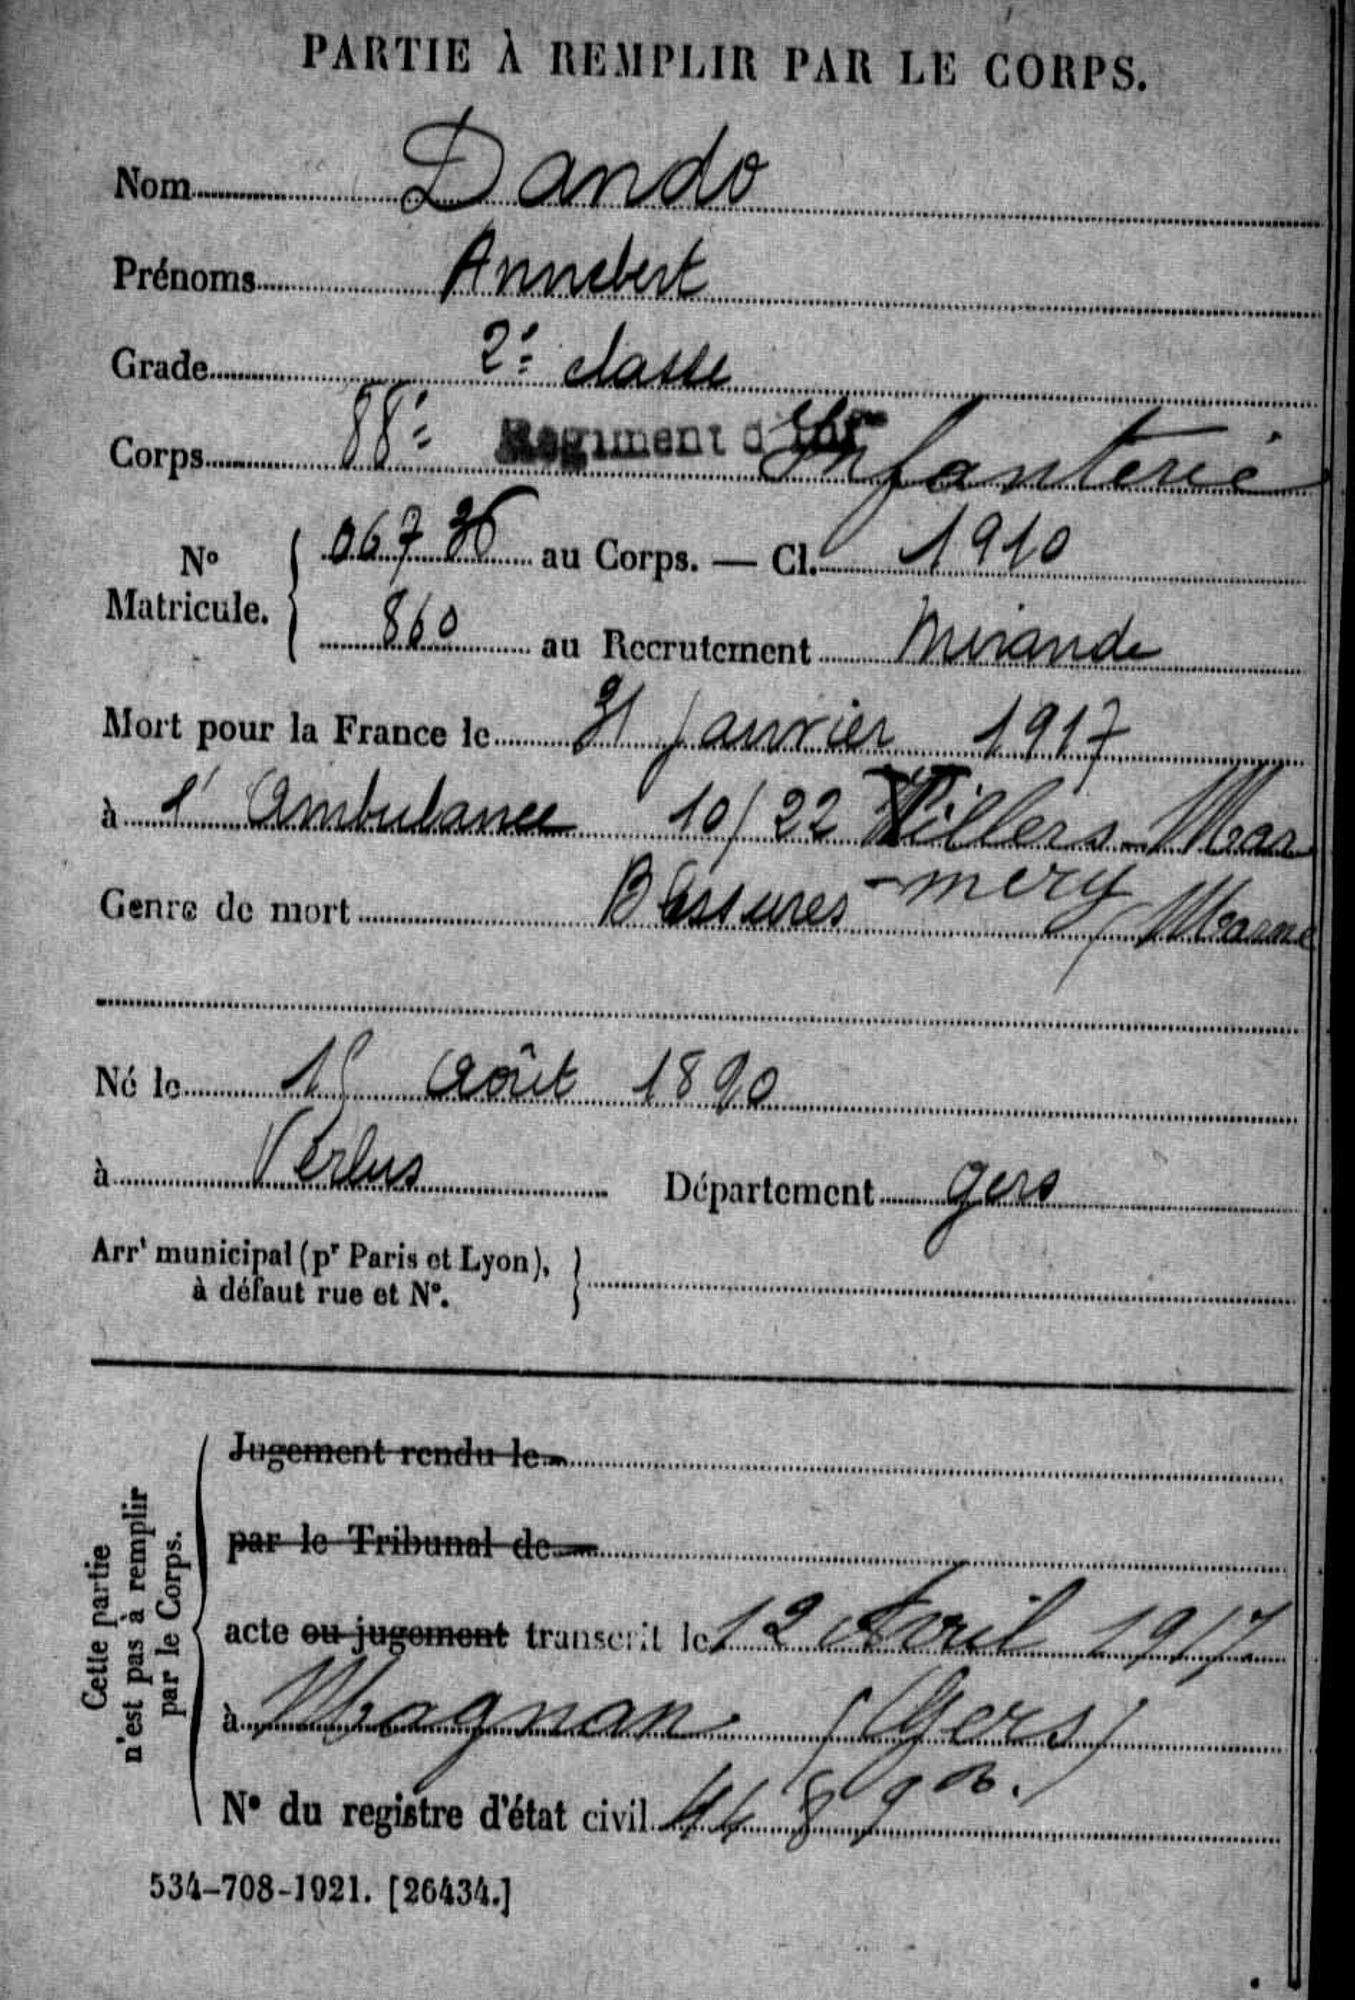 PARTIE À REMPLIR PAR LE CORPS.
Nom Dando
Prénoms Annebert
Grade 2e classe
Corps 88e Régiment d'Inf Infanterie
No Matricule. { 06736 au Corps. — Cl. 1910
860 au Recrutement Mirande
Mort pour la France le 31 janvier 1917
à l'Ambulance 10/22 Villers-Mar
-mery (Marne
Genre de mort Blessures
Né le août 1890
à Verlus Département Gers
Arrt municipal (pr Paris et Lyon),
à défaut rue et No.
Cette partie
n'est pas à remplir
par le Corps.
Jugement rendu le
par le Tribunal de
acte ou jugement transcrit le 12 Avril 1917
à Magnan (Gers)
No du registre d'état civil
534-708-1921. [26434.]